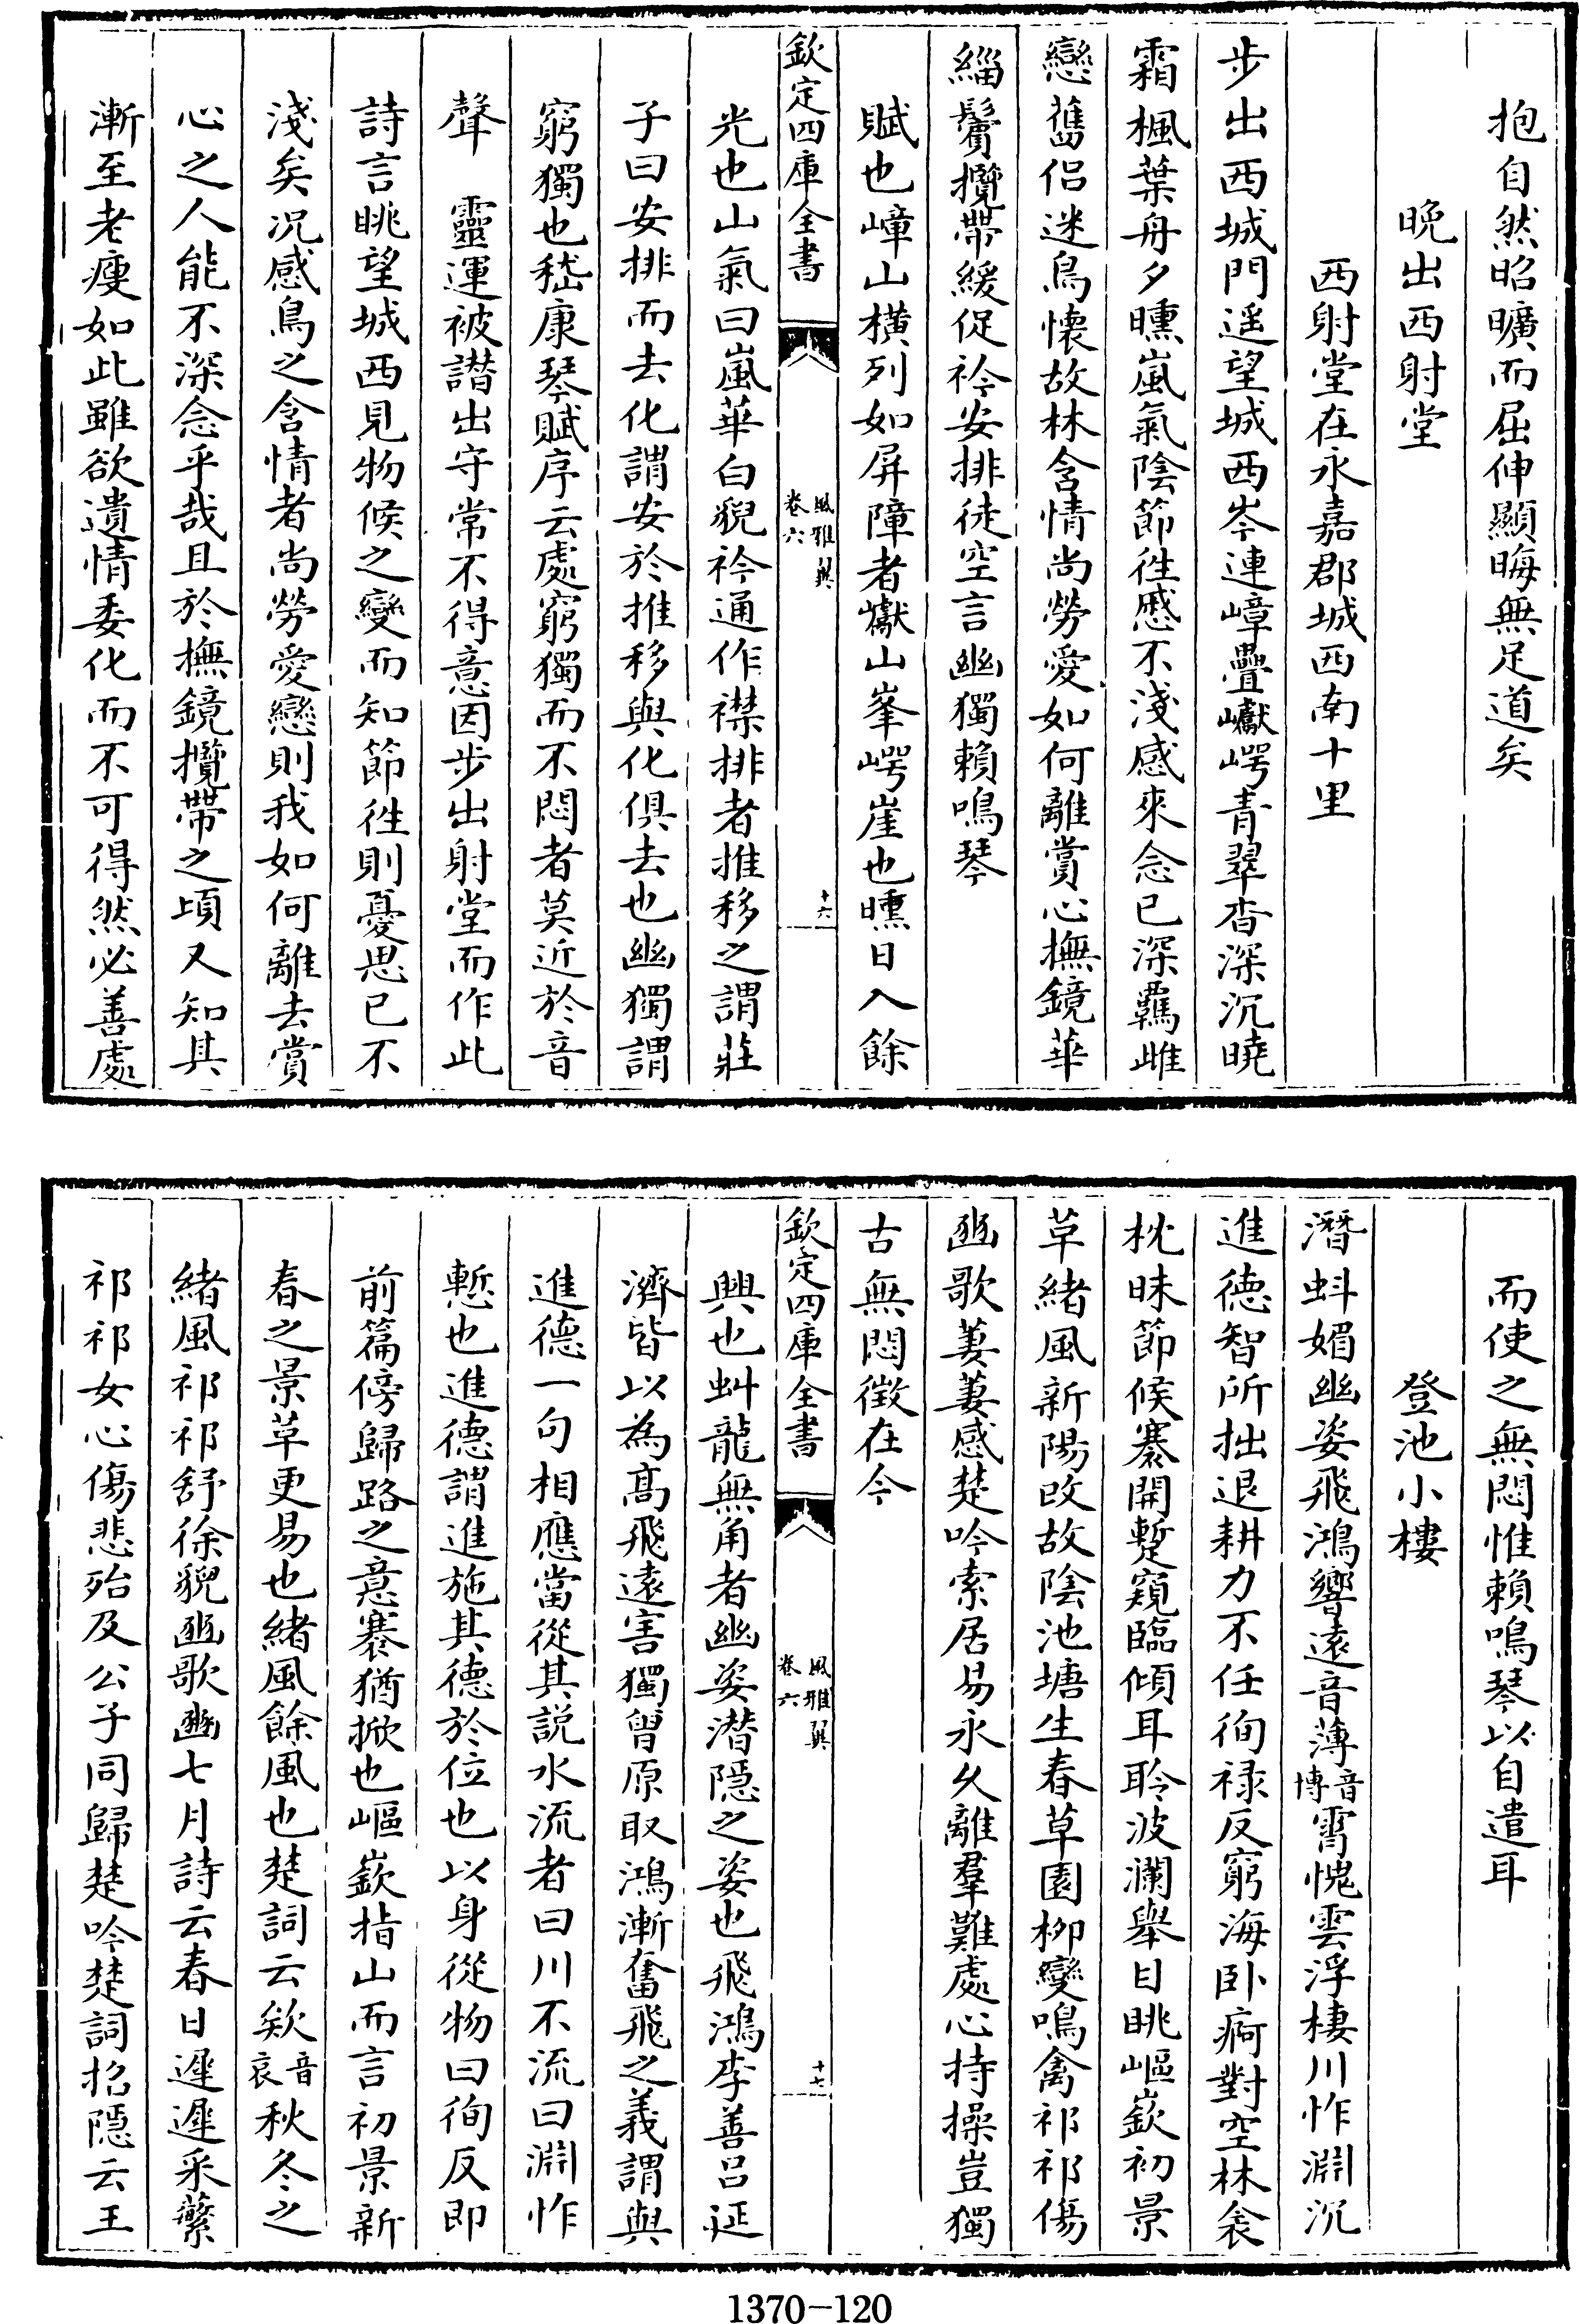 抱自然昭曠而屈伸顯晦無足道矣
晩出西射堂
西射堂在永嘉郡城西南十里
步出西城門遥望城西岑連嶂疊巘崿青翠杳深沉曉
霜楓葉丹夕曛嵐氣陰節徃慼不淺感來念已深羈雌
戀舊侣迷鳥懷故林含情尚勞愛如何離賞心撫鏡華
緇鬢攬帶緩促衿安排徒空言幽獨賴鳴琴
賦也嶂山横列如屏障者巘山峯崿崖也曛日入餘
欽定四庫全書
風雅翼
卷六
十六
光也山氣曰嵐華白貌衿通作襟排者推移之謂莊
子曰安排而去化謂安於推移與化俱去也幽獨謂
窮獨也嵇康琴賦序云處窮獨而不悶者莫近於音
聲 靈運被譖出守常不得意因步出射堂而作此
詩言眺望城西見物候之變而知節徃則憂思已不
淺矣況感鳥之含情者尚勞愛戀則我如何離去賞
心之人能不深念乎哉且於撫鏡攬帶之頃又知其
漸至老瘦如此雖欲遺情委化而不可得然必善處
而使之無悶惟賴鳴琴以自遣耳
登池小樓
潛蚪媚幽姿飛鴻響遠音薄音博霄愧雲浮棲川怍淵沉
進德智所拙退耕力不任徇禄反窮海卧痾對空林衾
枕昧節候褰開暫窺臨傾耳聆波瀾舉目眺嶇嶔初景
草緒風新陽改故陰池塘生春草園柳變鳴禽祁祁傷
豳歌萋萋感楚吟索居易永久離羣難處心持操豈獨
古無悶徵在今
欽定四庫全書
風雅翼
卷六
十七
興也虯龍無角者幽姿潜隱之姿也飛鴻李善吕延
濟皆以為髙飛遠害獨曾原取鴻漸奮飛之義謂與
進德一句相應當從其説水流者曰川不流曰淵怍
慙也進德謂進施其德於位也以身從物曰徇反即
前篇傍歸路之意褰猶掀也嶇嶔指山而言初景新
春之景草更易也緒風餘風也楚詞云欸音哀秋冬之
緒風祁祁舒徐貌豳歌豳七月詩云春日遲遲采蘩
祁祁女心傷悲殆及公子同歸楚吟楚詞招隱云王
1370-120